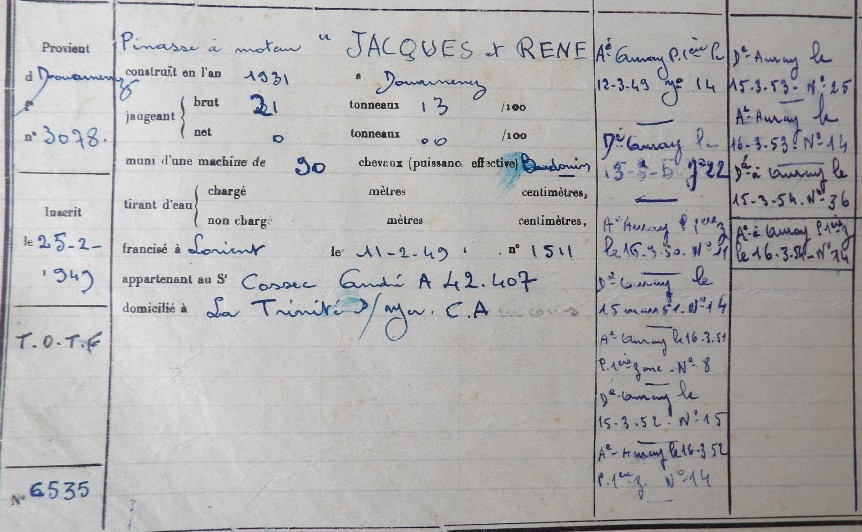 Provient
d Douarnenez
fo
n° 3078.
Inscrit
le 25-2-
1949
T.O.T.F
N° 6535
Pinasse à moteur " JACQUES et RENE
construit en l'an 1931 a Douarnenez
jaugeant { brut 21 tonneaux 13 /100
net 0 tonneaux 00 /100
muni d'une machine de 90 chevaux (puissance effective) Baudouin
tirant d'eau { chargé mètres centimètres,
non chargé mètres centimètres,
francisé à Lorient le 11-2-49 n° 1511
appartenant au Sr Cossec André A 42.407
domicilié à La Trinité s/mer. C.A en cours
Aé Auray P. 1ère le
12-3-49 n° 14
Dé Auray le
n° 22
Aé Auray P 1ère z
le 16.3.50. N° 11
Dé Auray le
15 mars 51. N° 14
Aé Auray le 16.3.51
P. 1ère zone - N° 8
Dé Auray le
15-3-52. N° 15
Aé Auray le 16-3.52
P. 1ère z. N° 14
Dé Auray le
15.3.53 - N° 25
Aé Auray le
16-3.53. N° 14
Dé à Auray le
15-3-54. N° 36
Aé à Auray P 1ère z
le 16.3.54 - N° 14